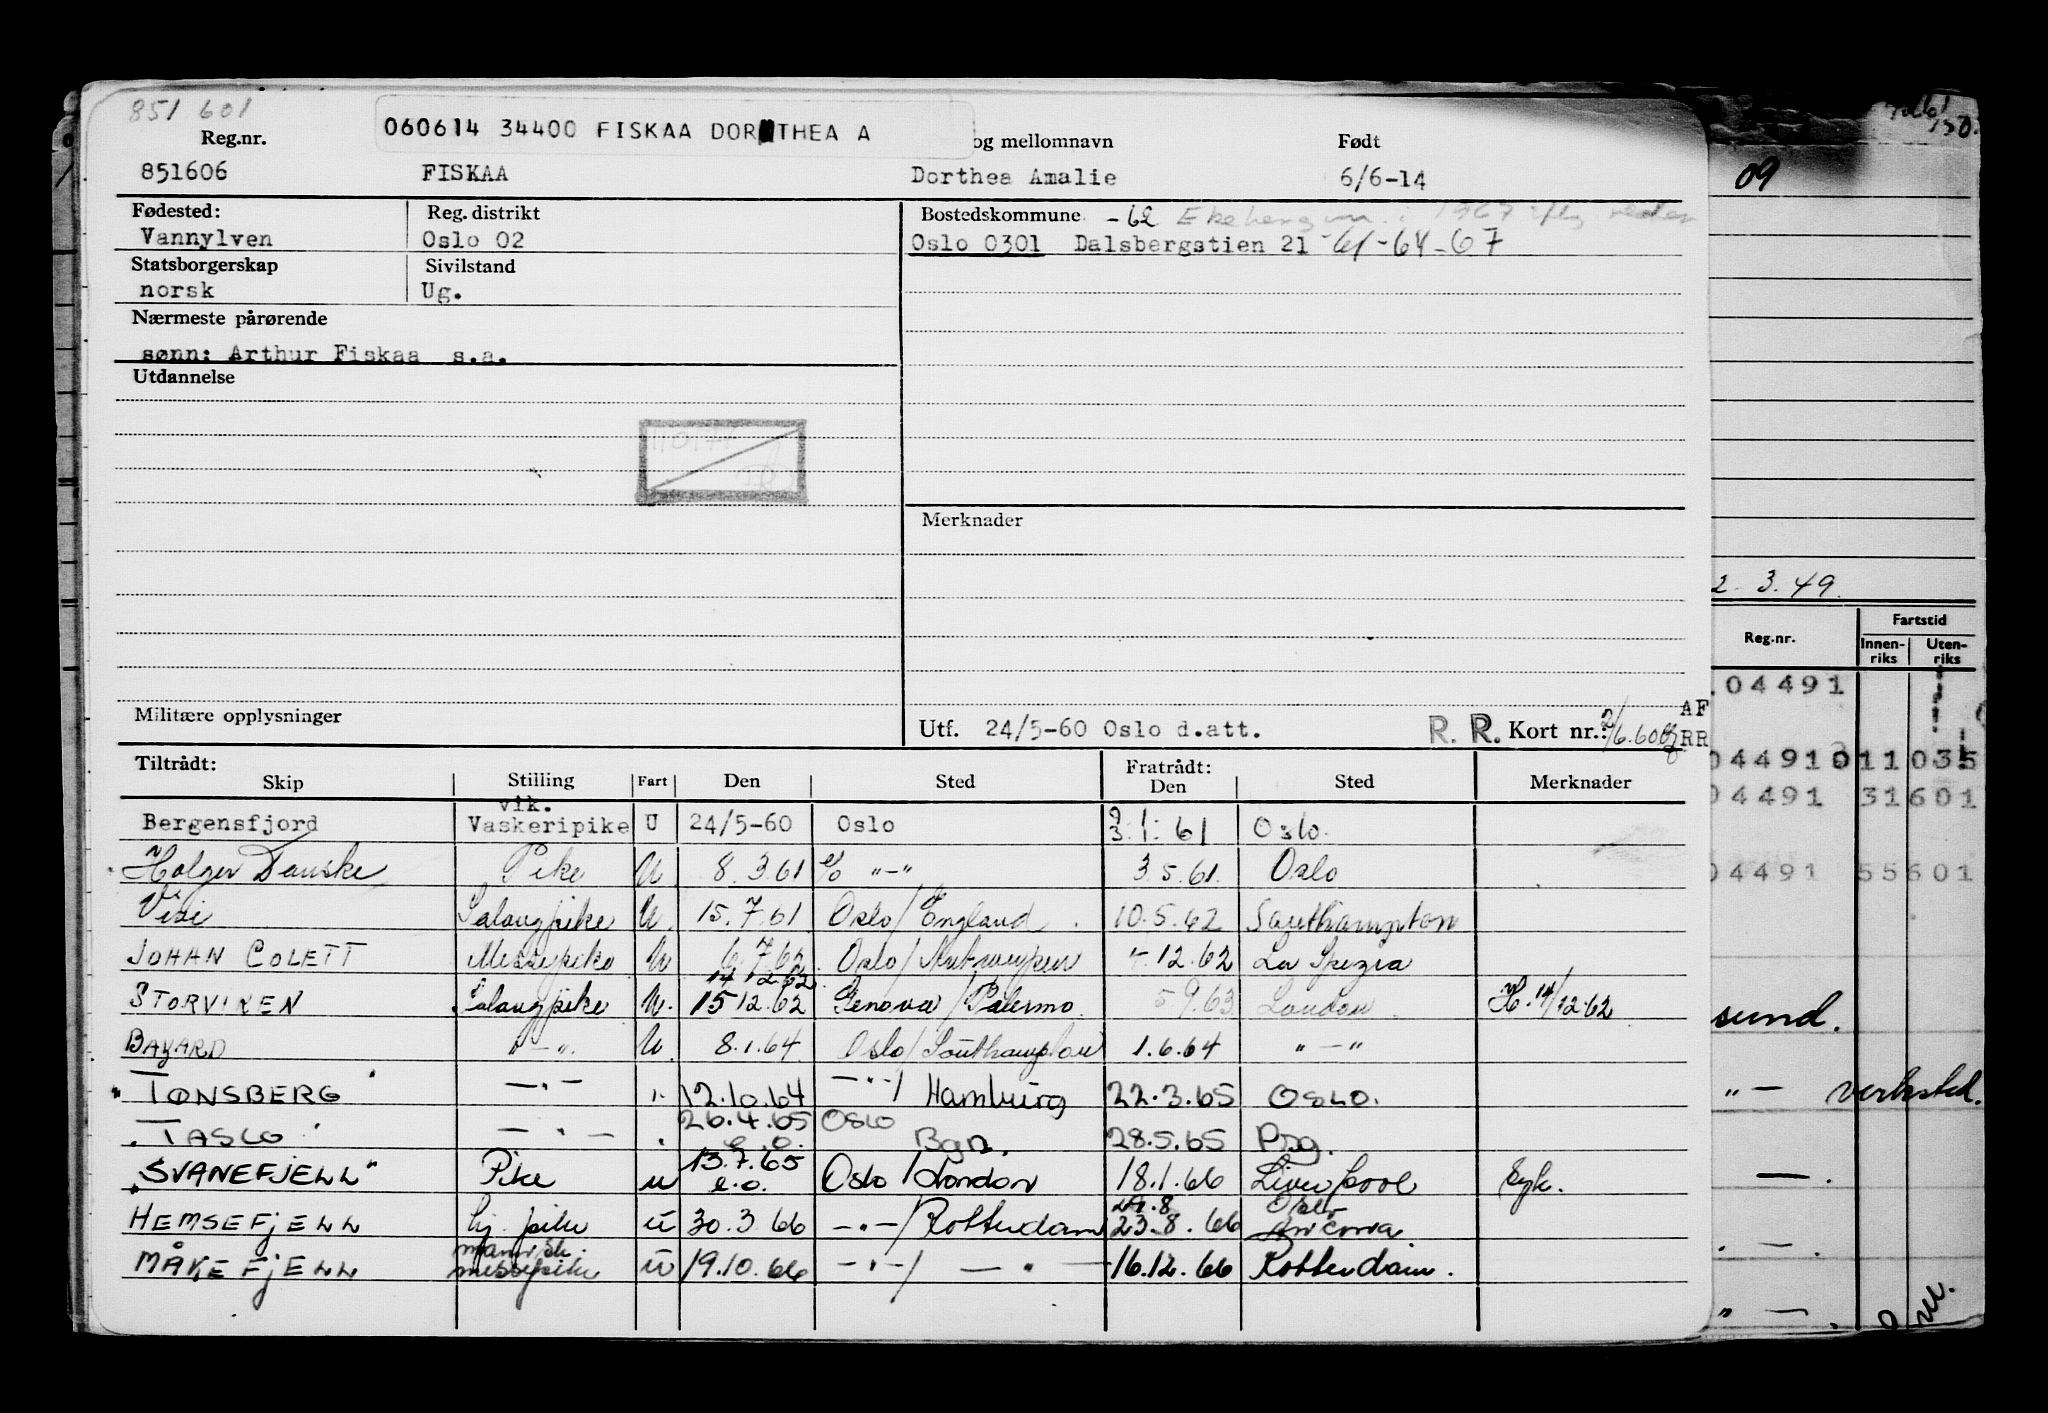 851 601
060614 34400 FISKAA DOROTHEA A
Reg.nr. og mellomnavn Født
851606 FISKAA Dorthea Amalie 6/6-14
09
Fødested: Reg. distrikt Bostedskommune -62 Ekeberg 1967
Vannylven Oslo 02 Oslo 0301 Dalsbergstien 21 -61-64-67
Statsborgerskap Sivilstand
norsk Ug.
Nærmeste pårørende
sønn: Arthur Fiskaa s.a.
Utdannelse
Merknader
2.3.49.
Reg.nr. Fartstid
Innen-riks Uten-riks
04491
Militære opplysninger Utf. 24/5-60 Oslo d.att. R. R. Kort nr.: 2/6.60 AF
RR
Tiltrådt: Fratrådt:
Skip Stilling Fart Den Sted Den Sted Merknader
04491 011 035
04491 31601
vik.
Bergensfjord Vaskeripike U 24/5-60 Oslo 3.1.61 Oslo.
Holger Danske Pike U 8.3.61 e/o "-" 3.5.61 Oslo
04491 55601
Visi Salongpike U. 15.7.61 Oslo/England 10.5.62 Southampton
JOHAN COLETT Messepike U 6.7.62 Oslo/Antwerpen 4.12.62 La Spezia
14.12.62
STORVIKEN Salongpike U. 15.12.62 Genova/Palermo 5.9.63 London H. 14/12-62
sund.
BAYARD "-" U. 8.1.64 Oslo/Southampton 1.6.64 "-"
"TØNSBERG" -"- " 12.10.64 -"-/ Hamburg 22.3.65 OSLO.
"- verksted.
"TASCO" -"- " 26.4.65 e.o. OSLO Bgn. 28.5.65 Psg.
"SVANEFJELL" Pike u 13.7.65 e.o. Oslo/London 18.1.66 Liverpool Syk.
24.8 Oslo
HEMSEFJELL lg. pike u 30.3.66 -"-/Rotterdam 23.8.66 Ancona
MÅKEFJELL messepike u 19.10.66 -"-/ -"- 16.12.66 Rotterdam.